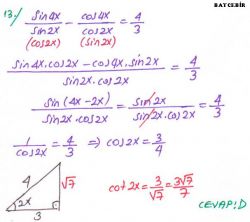 BATCEBİR
13.) sin4x/sin2x - cos4x/cos2x = 4/3
(cos2x) (sin2x)
sin4x.cos2x - cos4x.sin2x / sin2x.cos2x = 4/3
sin(4x-2x) / sin2x.cos2x = sin2x / sin2x.cos2x = 4/3
1/cos2x = 4/3 ⇒ cos2x = 3/4
4 √7 cot2x = 3/√7 = 3√7/7
2x
3 CEVAP:D